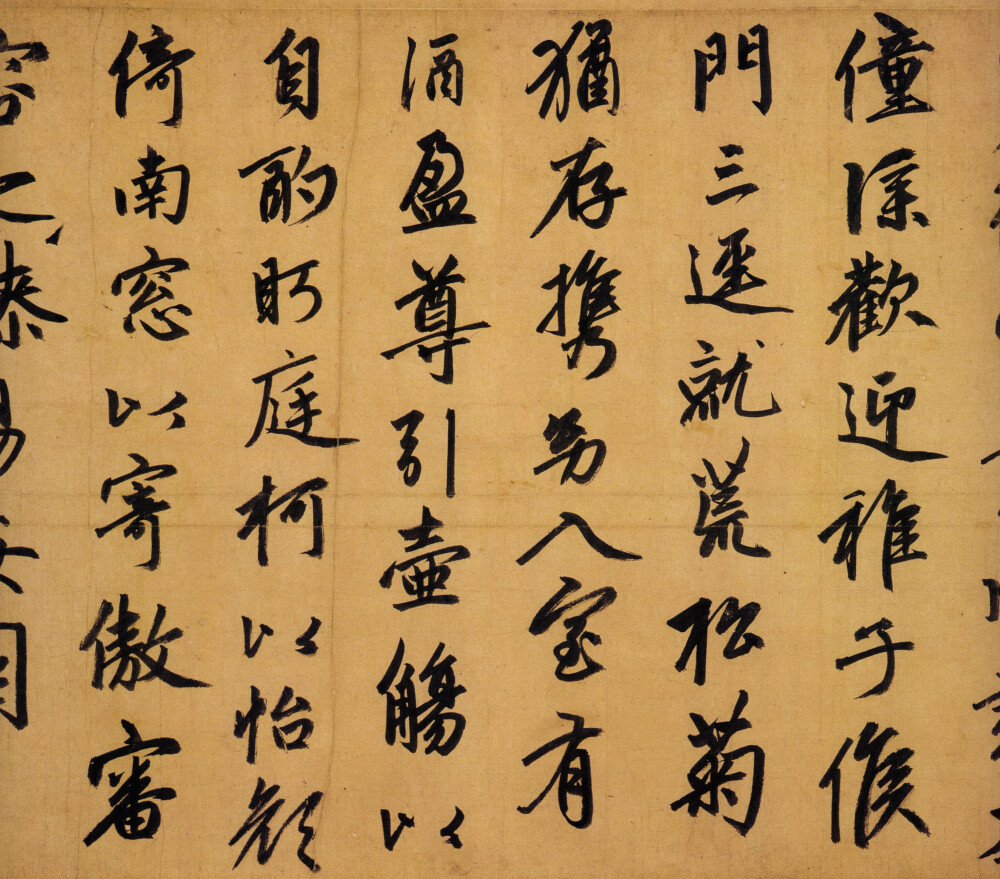 僮僕歡迎稚子候
門三逕就荒松菊
猶存携幼入室有
酒盈尊引壺觴以
自酌眄庭柯以怡顏
倚南窓以寄傲審